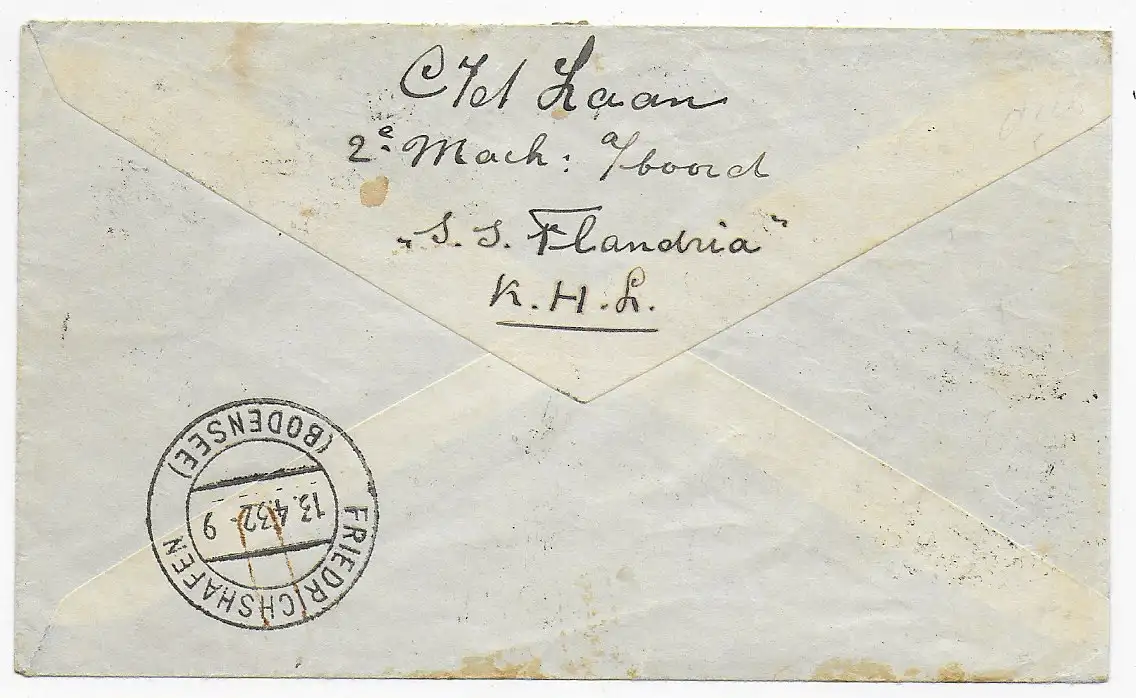 C/el Laan
2e Mach: a/boord
„S.S. Flandria"
K.H.L.
FRIEDRICHSHAFEN
(BODENSEE)
13.4.32- 9